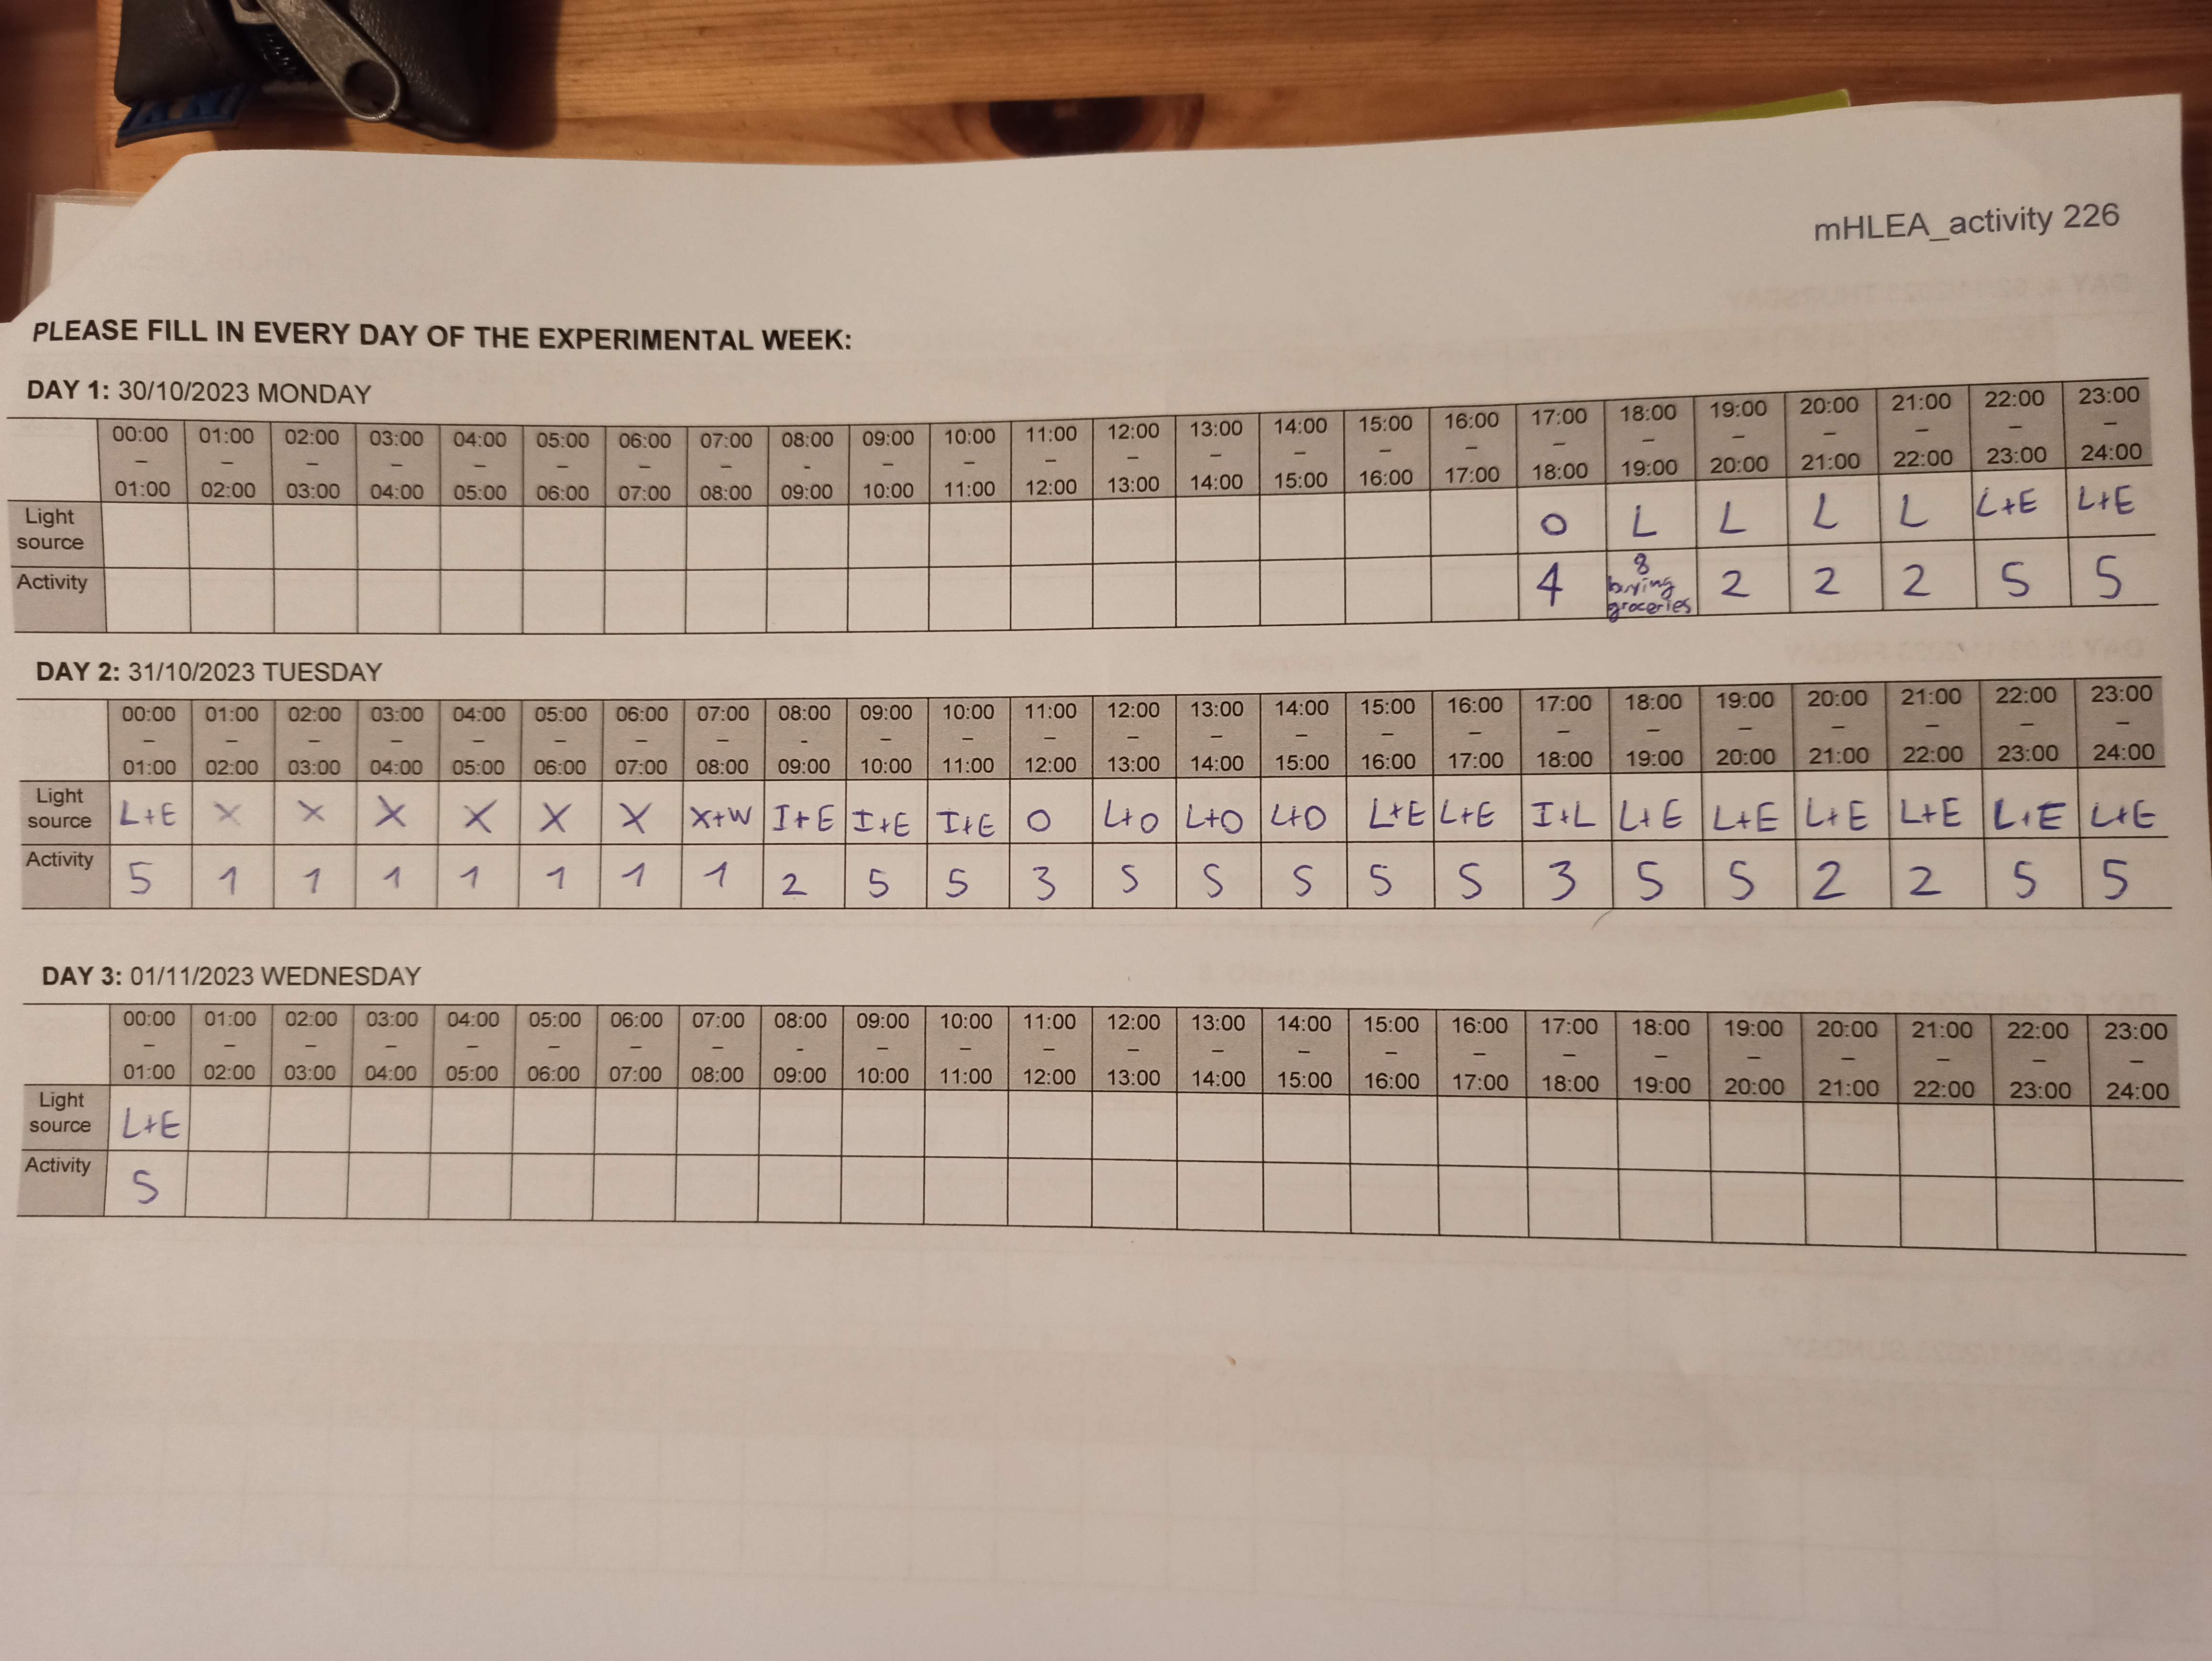 mHLEA_activity 226
PLEASE FILL IN EVERY DAY OF THE EXPERIMENTAL WEEK:
DAY 1: 30/10/2023 MONDAY
00:00 – 01:00 01:00 – 02:00 02:00 – 03:00 03:00 – 04:00 04:00 – 05:00 05:00 – 06:00 06:00 – 07:00 07:00 – 08:00 08:00 - 09:00 09:00 – 10:00 10:00 – 11:00 11:00 – 12:00 12:00 – 13:00 13:00 – 14:00 14:00 – 15:00 15:00 – 16:00 16:00 – 17:00 17:00 – 18:00 18:00 – 19:00 19:00 – 20:00 20:00 – 21:00 21:00 – 22:00 22:00 – 23:00 23:00 – 24:00
Light source O L L L L L+E L+E
Activity 4 8 buying groceries 2 2 2 5 5
DAY 2: 31/10/2023 TUESDAY
00:00 – 01:00 01:00 – 02:00 02:00 – 03:00 03:00 – 04:00 04:00 – 05:00 05:00 – 06:00 06:00 – 07:00 07:00 – 08:00 08:00 - 09:00 09:00 – 10:00 10:00 – 11:00 11:00 – 12:00 12:00 – 13:00 13:00 – 14:00 14:00 – 15:00 15:00 – 16:00 16:00 – 17:00 17:00 – 18:00 18:00 – 19:00 19:00 – 20:00 20:00 – 21:00 21:00 – 22:00 22:00 – 23:00 23:00 – 24:00
Light source L+E X X X X X X X+W I+E I+E I+E O L+O L+O L+O L+E L+E I+L L+E L+E L+E L+E L+E L+E
Activity 5 1 1 1 1 1 1 1 2 5 5 3 5 5 5 5 5 3 5 5 2 2 5 5
DAY 3: 01/11/2023 WEDNESDAY
00:00 – 01:00 01:00 – 02:00 02:00 – 03:00 03:00 – 04:00 04:00 – 05:00 05:00 – 06:00 06:00 – 07:00 07:00 – 08:00 08:00 - 09:00 09:00 – 10:00 10:00 – 11:00 11:00 – 12:00 12:00 – 13:00 13:00 – 14:00 14:00 – 15:00 15:00 – 16:00 16:00 – 17:00 17:00 – 18:00 18:00 – 19:00 19:00 – 20:00 20:00 – 21:00 21:00 – 22:00 22:00 – 23:00 23:00 – 24:00
Light source L+E
Activity 5